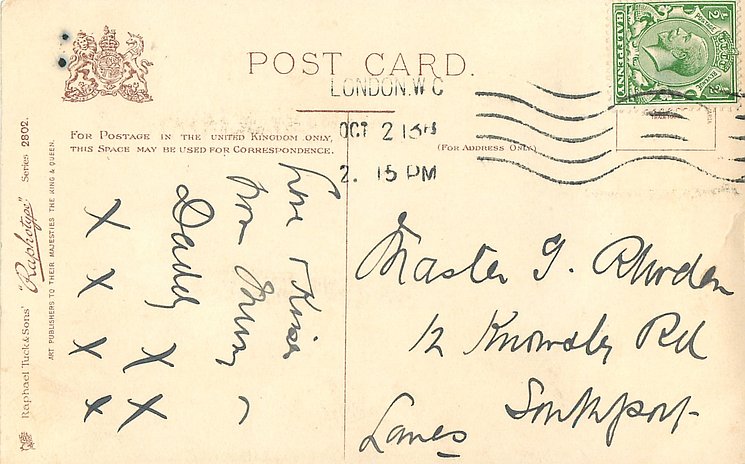 POST CARD.
LONDON. W C
OCT 2 13
2. 15 PM
HALFPENNY
½
½
FOR POSTAGE IN THE UNITED KINGDOM ONLY,
THIS SPACE MAY BE USED FOR CORRESPONDENCE.
(FOR ADDRESS ONLY)
Raphael Tuck & Sons' "Raphotype" Series 2802.
ART PUBLISHERS TO THEIR MAJESTIES THE KING & QUEEN.
Love & Kisses
from Mummy &
Daddy X X
X X X X
Master J. Rhoden
12 Knowsley Rd
Southport
Lancs